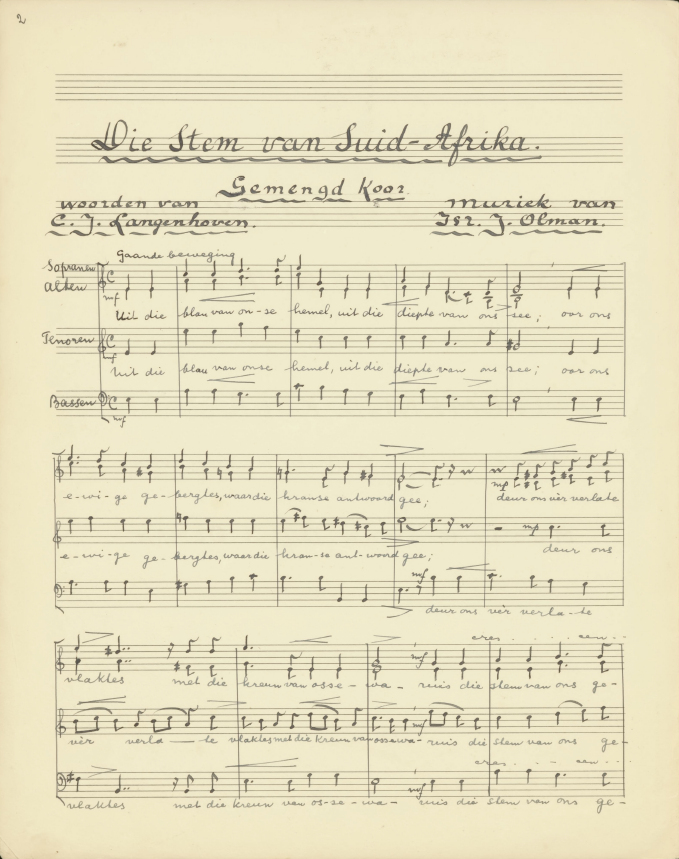 2
Die Stem van Suid-Afrika.
Gemengd Koor
woorden van
C. J. Langenhoven.
muziek van
Isr. J. Olman.
Gaande beweging
Sopranen
Alten
mf
Uit die blau van on-se hemel, uit die diepte van ons see; oor ons
Tenoren
mf
Uit die blau van onse hemel, uit die diepte van ons see; oor ons
Bassen
mf
e-wi-ge ge-bergtes, waar die kranse antwoord gee; deur ons vèr verlate
mp
e-wi-ge ge-bergtes, waar die kran-se ant-woord gee; deur ons
mp
mf
deur ons vèr verla-te
cres . . . cen . .
mf
vlaktes met die kreun van osse-wa-ruis die stem van ons ge-
mf
vèr verla-te vlaktes met die kreun van ossewa-ruis die stem van ons ge-
cres . . . cen . .
mf
vlaktes met die kreun van os-se-wa-ruis die stem van ons ge-